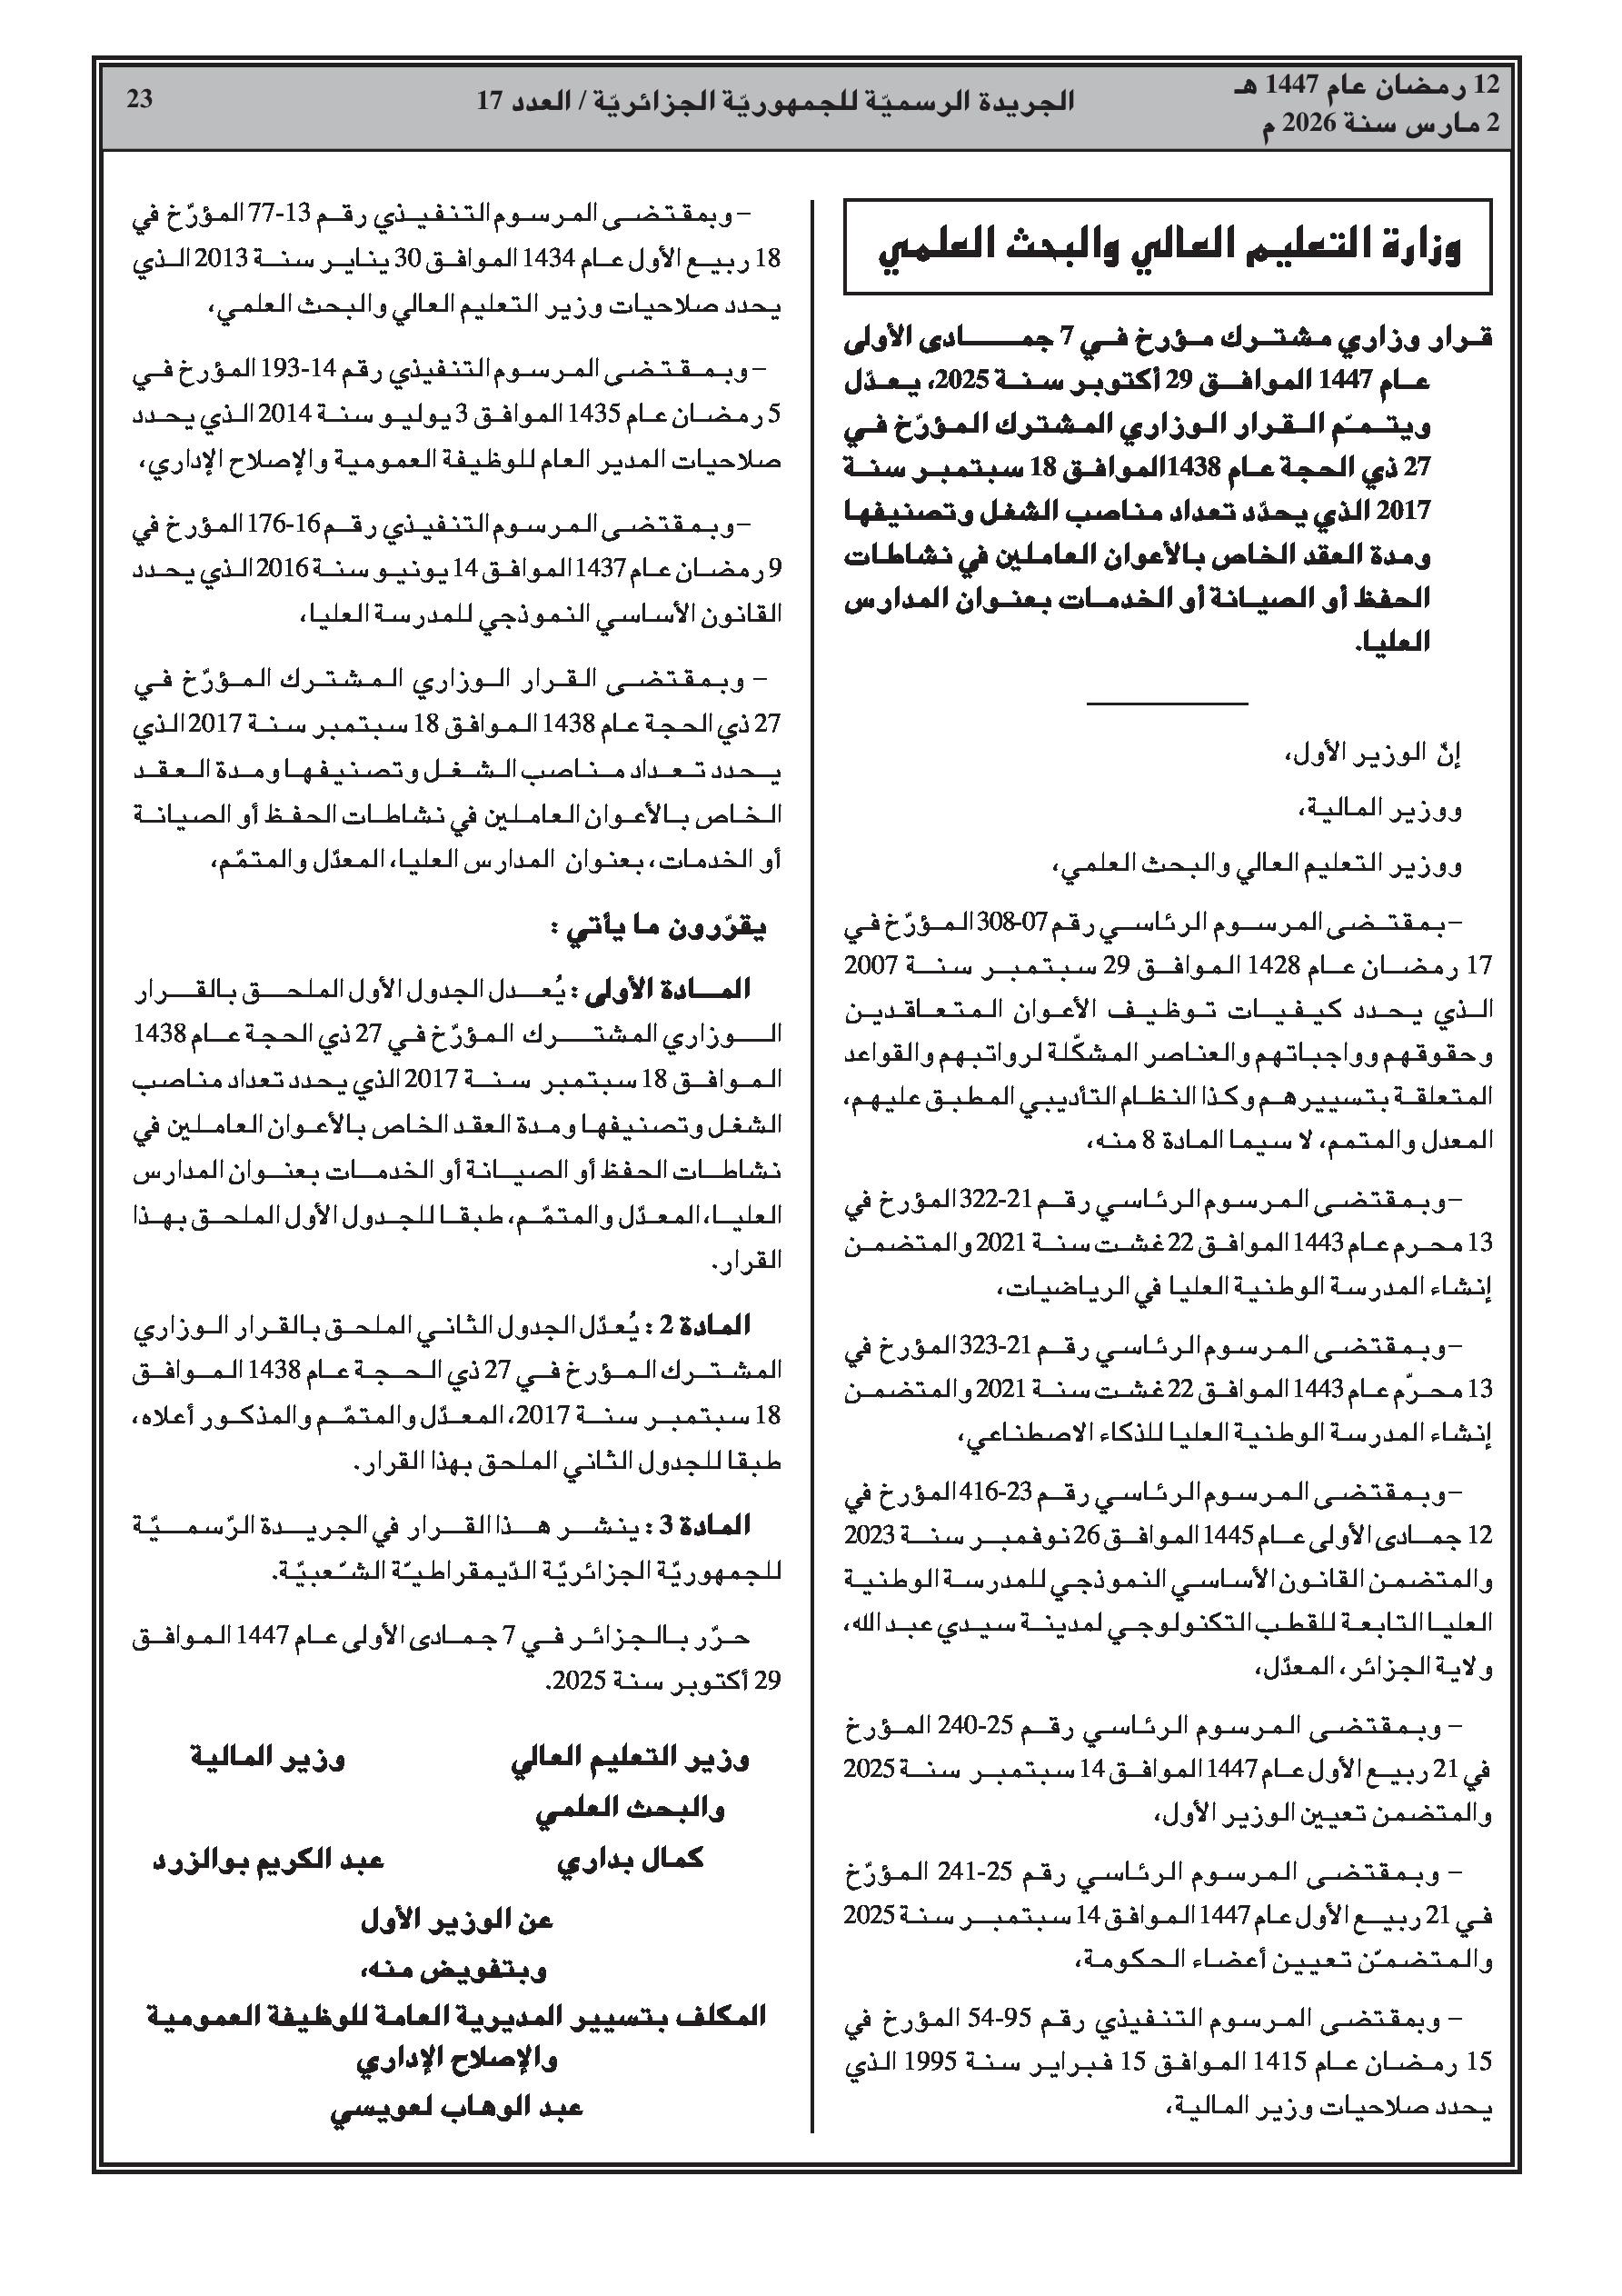 12 رمضان عام 1447 هـ
2 مارس سنة 2026 م
الجريدة الرسميّة للجمهوريّة الجزائريّة / العدد 17
23
وزارة التعليم العالي والبحث العلمي
قرار وزاري مشترك مؤرخ في 7 جمادى الأولى
عام 1447 الموافق 29 أكتوبر سنة 2025، يعدّل
ويتمّم القرار الوزاري المشترك المؤرّخ في
27 ذي الحجة عام 1438الموافق 18 سبتمبر سنة
2017 الذي يحدّد تعداد مناصب الشغل وتصنيفها
ومدة العقد الخاص بالأعوان العاملين في نشاطات
الحفظ أو الصيانة أو الخدمات بعنوان المدارس
العليا.
إنّ الوزير الأول،
ووزير المالية،
ووزير التعليم العالي والبحث العلمي،
– بمقتضى المرسوم الرئاسي رقم 07-308 المؤرّخ في
17 رمضان عام 1428 الموافق 29 سبتمبر سنة 2007
الذي يحدد كيفيات توظيف الأعوان المتعاقدين
وحقوقهم وواجباتهم والعناصر المشكّلة لرواتبهم والقواعد
المتعلقة بتسييرهم وكذا النظام التأديبي المطبق عليهم،
المعدل والمتمم، لا سيما المادة 8 منه،
– وبمقتضى المرسوم الرئاسي رقم 21-322 المؤرخ في
13 محرم عام 1443 الموافق 22 غشت سنة 2021 والمتضمن
إنشاء المدرسة الوطنية العليا في الرياضيات،
– وبمقتضى المرسوم الرئاسي رقم 21-323 المؤرخ في
13 محرّم عام 1443 الموافق 22 غشت سنة 2021 والمتضمن
إنشاء المدرسة الوطنية العليا للذكاء الاصطناعي،
– وبمقتضى المرسوم الرئاسي رقم 23-416 المؤرخ في
12 جمادى الأولى عام 1445 الموافق 26 نوفمبر سنة 2023
والمتضمن القانون الأساسي النموذجي للمدرسة الوطنية
العليا التابعة للقطب التكنولوجي لمدينة سيدي عبد الله،
ولاية الجزائر، المعدّل،
– وبمقتضى المرسوم الرئاسي رقم 25-240 المؤرخ
في 21 ربيع الأول عام 1447 الموافق 14 سبتمبر سنة 2025
والمتضمن تعيين الوزير الأول،
– وبمقتضى المرسوم الرئاسي رقم 25-241 المؤرّخ
في 21 ربيع الأول عام 1447 الموافق 14 سبتمبر سنة 2025
والمتضمّن تعيين أعضاء الحكومة،
– وبمقتضى المرسوم التنفيذي رقم 95-54 المؤرخ في
15 رمضان عام 1415 الموافق 15 فبراير سنة 1995 الذي
يحدد صلاحيات وزير المالية،
– وبمقتضى المرسوم التنفيذي رقم 13-77 المؤرّخ في
18 ربيع الأول عام 1434 الموافق 30 يناير سنة 2013 الذي
يحدد صلاحيات وزير التعليم العالي والبحث العلمي،
– وبمقتضى المرسوم التنفيذي رقم 14-193 المؤرخ في
5 رمضان عام 1435 الموافق 3 يوليو سنة 2014 الذي يحدد
صلاحيات المدير العام للوظيفة العمومية والإصلاح الإداري،
– وبمقتضى المرسوم التنفيذي رقم 16-176 المؤرخ في
9 رمضان عام 1437 الموافق 14 يونيو سنة 2016 الذي يحدد
القانون الأساسي النموذجي للمدرسة العليا،
– وبمقتضى القرار الوزاري المشترك المؤرّخ في
27 ذي الحجة عام 1438 الموافق 18 سبتمبر سنة 2017 الذي
يحدد تعداد مناصب الشغل وتصنيفها ومدة العقد
الخاص بالأعوان العاملين في نشاطات الحفظ أو الصيانة
أو الخدمات، بعنوان المدارس العليا، المعدّل والمتمّم،
يقرّرون ما يأتي :
المادة الأولى : يُعدل الجدول الأول الملحق بالقرار
الوزاري المشترك المؤرّخ في 27 ذي الحجة عام 1438
الموافق 18 سبتمبر سنة 2017 الذي يحدد تعداد مناصب
الشغل وتصنيفها ومدة العقد الخاص بالأعوان العاملين في
نشاطات الحفظ أو الصيانة أو الخدمات بعنوان المدارس
العليا، المعدّل والمتمّم، طبقا للجدول الأول الملحق بهذا
القرار.
المادة 2 : يُعدّل الجدول الثاني الملحق بالقرار الوزاري
المشترك المؤرخ في 27 ذي الحجة عام 1438 الموافق
18 سبتمبر سنة 2017، المعدّل والمتمّم والمذكور أعلاه،
طبقا للجدول الثاني الملحق بهذا القرار.
المادة 3 : ينشر هذا القرار في الجريدة الرّسميّة
للجمهوريّة الجزائريّة الدّيمقراطيّة الشّعبيّة.
حرّر بالجزائر في 7 جمادى الأولى عام 1447 الموافق
29 أكتوبر سنة 2025.
وزير التعليم العالي
والبحث العلمي
كمال بداري
وزير المالية
عبد الكريم بوالزرد
عن الوزير الأول
وبتفويض منه،
المكلف بتسيير المديرية العامة للوظيفة العمومية
والإصلاح الإداري
عبد الوهاب لعويسي